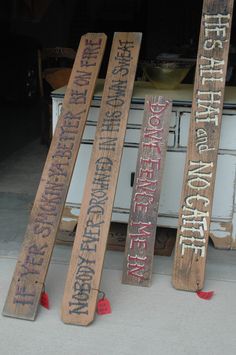 IF YER SMOKIN' YA BETTER BE ON FIRE
NOBODY EVER DROWNED IN HIS OWN SWEAT
DON'T FENCE ME IN
HE'S ALL HAT and NO CATTLE